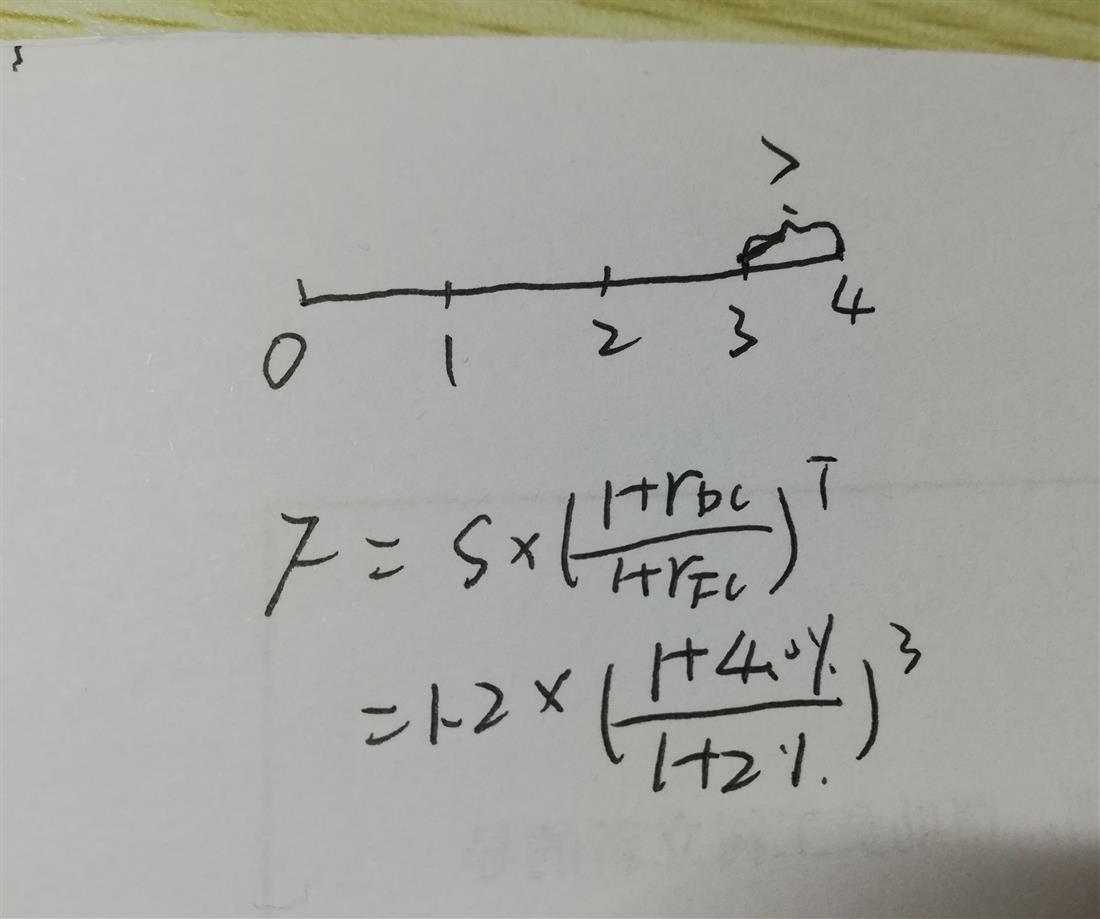 >
0 1 2 3 4
F = S × (1+r_DC / 1+r_FC)^T
= 1.2 × (1+4.0% / 1+2%)^3